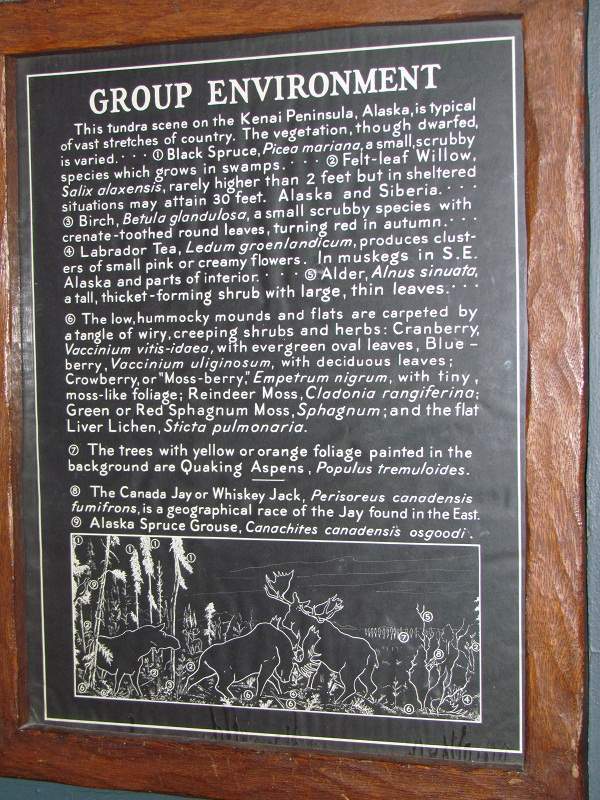 GROUP ENVIRONMENT
This tundra scene on the Kenai Peninsula, Alaska, is typical
of vast stretches of country. The vegetation, though dwarfed,
is varied. · · · ① Black Spruce, Picea mariana, a small, scrubby
species which grows in swamps. · · · · ② Felt-leaf Willow,
Salix alaxensis, rarely higher than 2 feet but in sheltered
situations may attain 30 feet. Alaska and Siberia. · · ·
③ Birch, Betula glandulosa, a small scrubby species with
crenate-toothed round leaves, turning red in autumn. · · ·
④ Labrador Tea, Ledum groenlandicum, produces clust-
ers of small pink or creamy flowers. In muskegs in S.E.
Alaska and parts of interior. · · · · ⑤ Alder, Alnus sinuata,
a tall, thicket-forming shrub with large, thin leaves. · · ·
⑥ The low, hummocky mounds and flats are carpeted by
a tangle of wiry, creeping shrubs and herbs: Cranberry,
Vaccinium vitis-idaea, with evergreen oval leaves, Blue-
berry, Vaccinium uliginosum, with deciduous leaves;
Crowberry, or "Moss-berry," Empetrum nigrum, with tiny,
moss-like foliage; Reindeer Moss, Cladonia rangiferina;
Green or Red Sphagnum Moss, Sphagnum; and the flat
Liver Lichen, Sticta pulmonaria.
⑦ The trees with yellow or orange foliage painted in the
background are Quaking Aspens, Populus tremuloides.
⑧ The Canada Jay or Whiskey Jack, Perisoreus canadensis
fumifrons, is a geographical race of the Jay found in the East.
⑨ Alaska Spruce Grouse, Canachites canadensis osgoodi.
① ① ① ①
⑨
⑤
②
⑦
⑧
②
②
②
③
④
⑥ ⑥ ④ ⑥ ⑥